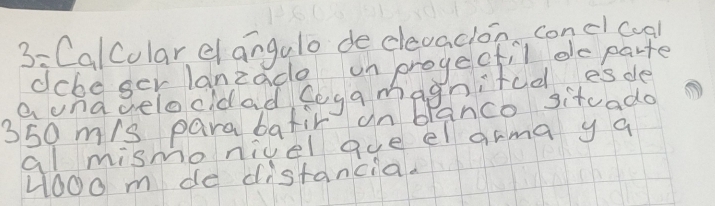 3=Calcular el ángulo de elevación con el cual
debe ser lanzado un proyectil de parte
a una velocidad cuya magnitud es de
350 m/s para batir un blanco situado
al mismo nivel que el arma y a
4000 m de distancia.